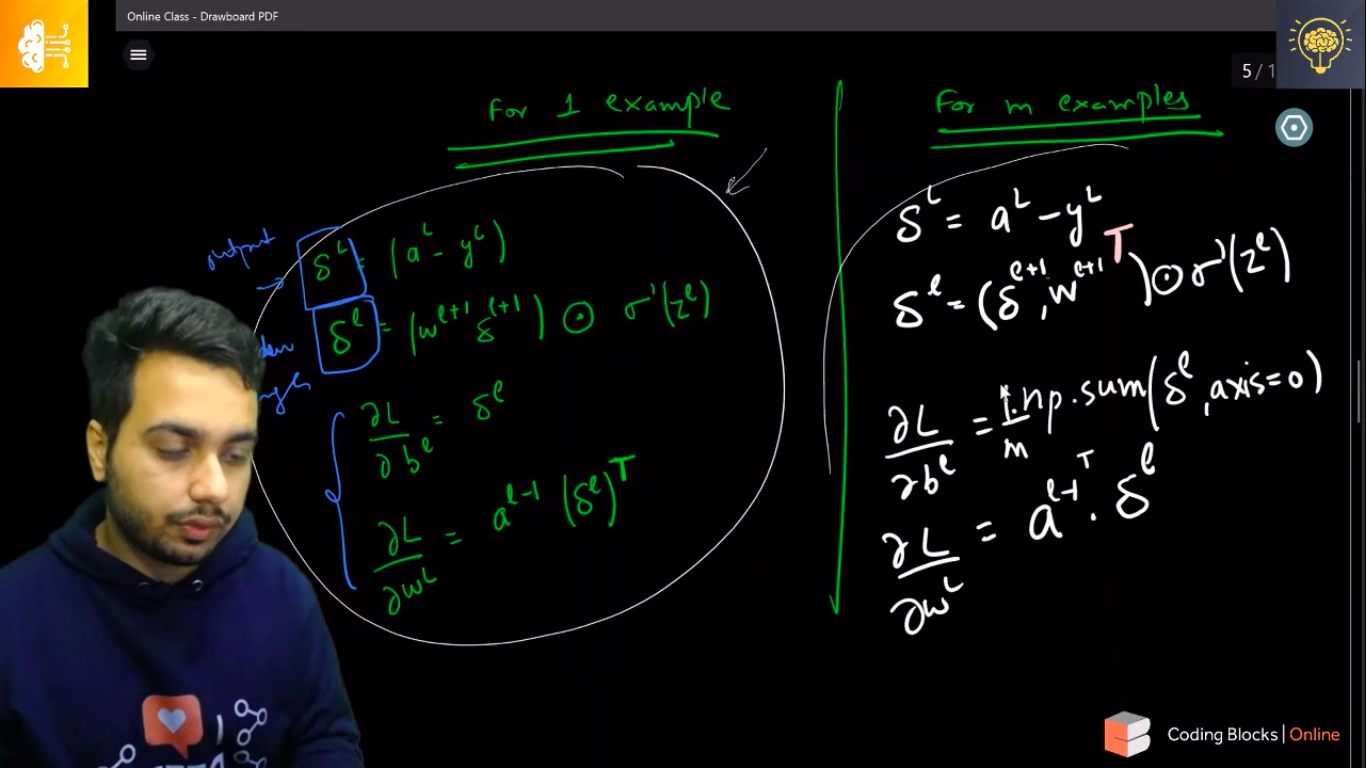 Online Class - Drawboard PDF
5 / 1
For 1 example
output
δ^L = (a^L - y^L)
δ^l = (w^{l+1} δ^{l+1}) ⊙ σ'(z^l)
∂L/∂b^l = δ^l
∂L/∂w^L = a^{l-1} (δ^l)^T
For m examples
δ^L = a^L - y^L
δ^l = (δ^{l+1}, w^{l+1 T}) ⊙ σ'(z^l)
∂L/∂b^l = 1/m . np.sum(δ^l, axis=0)
∂L/∂w^L = a^{l-1 T} . δ^l
Coding Blocks | Online